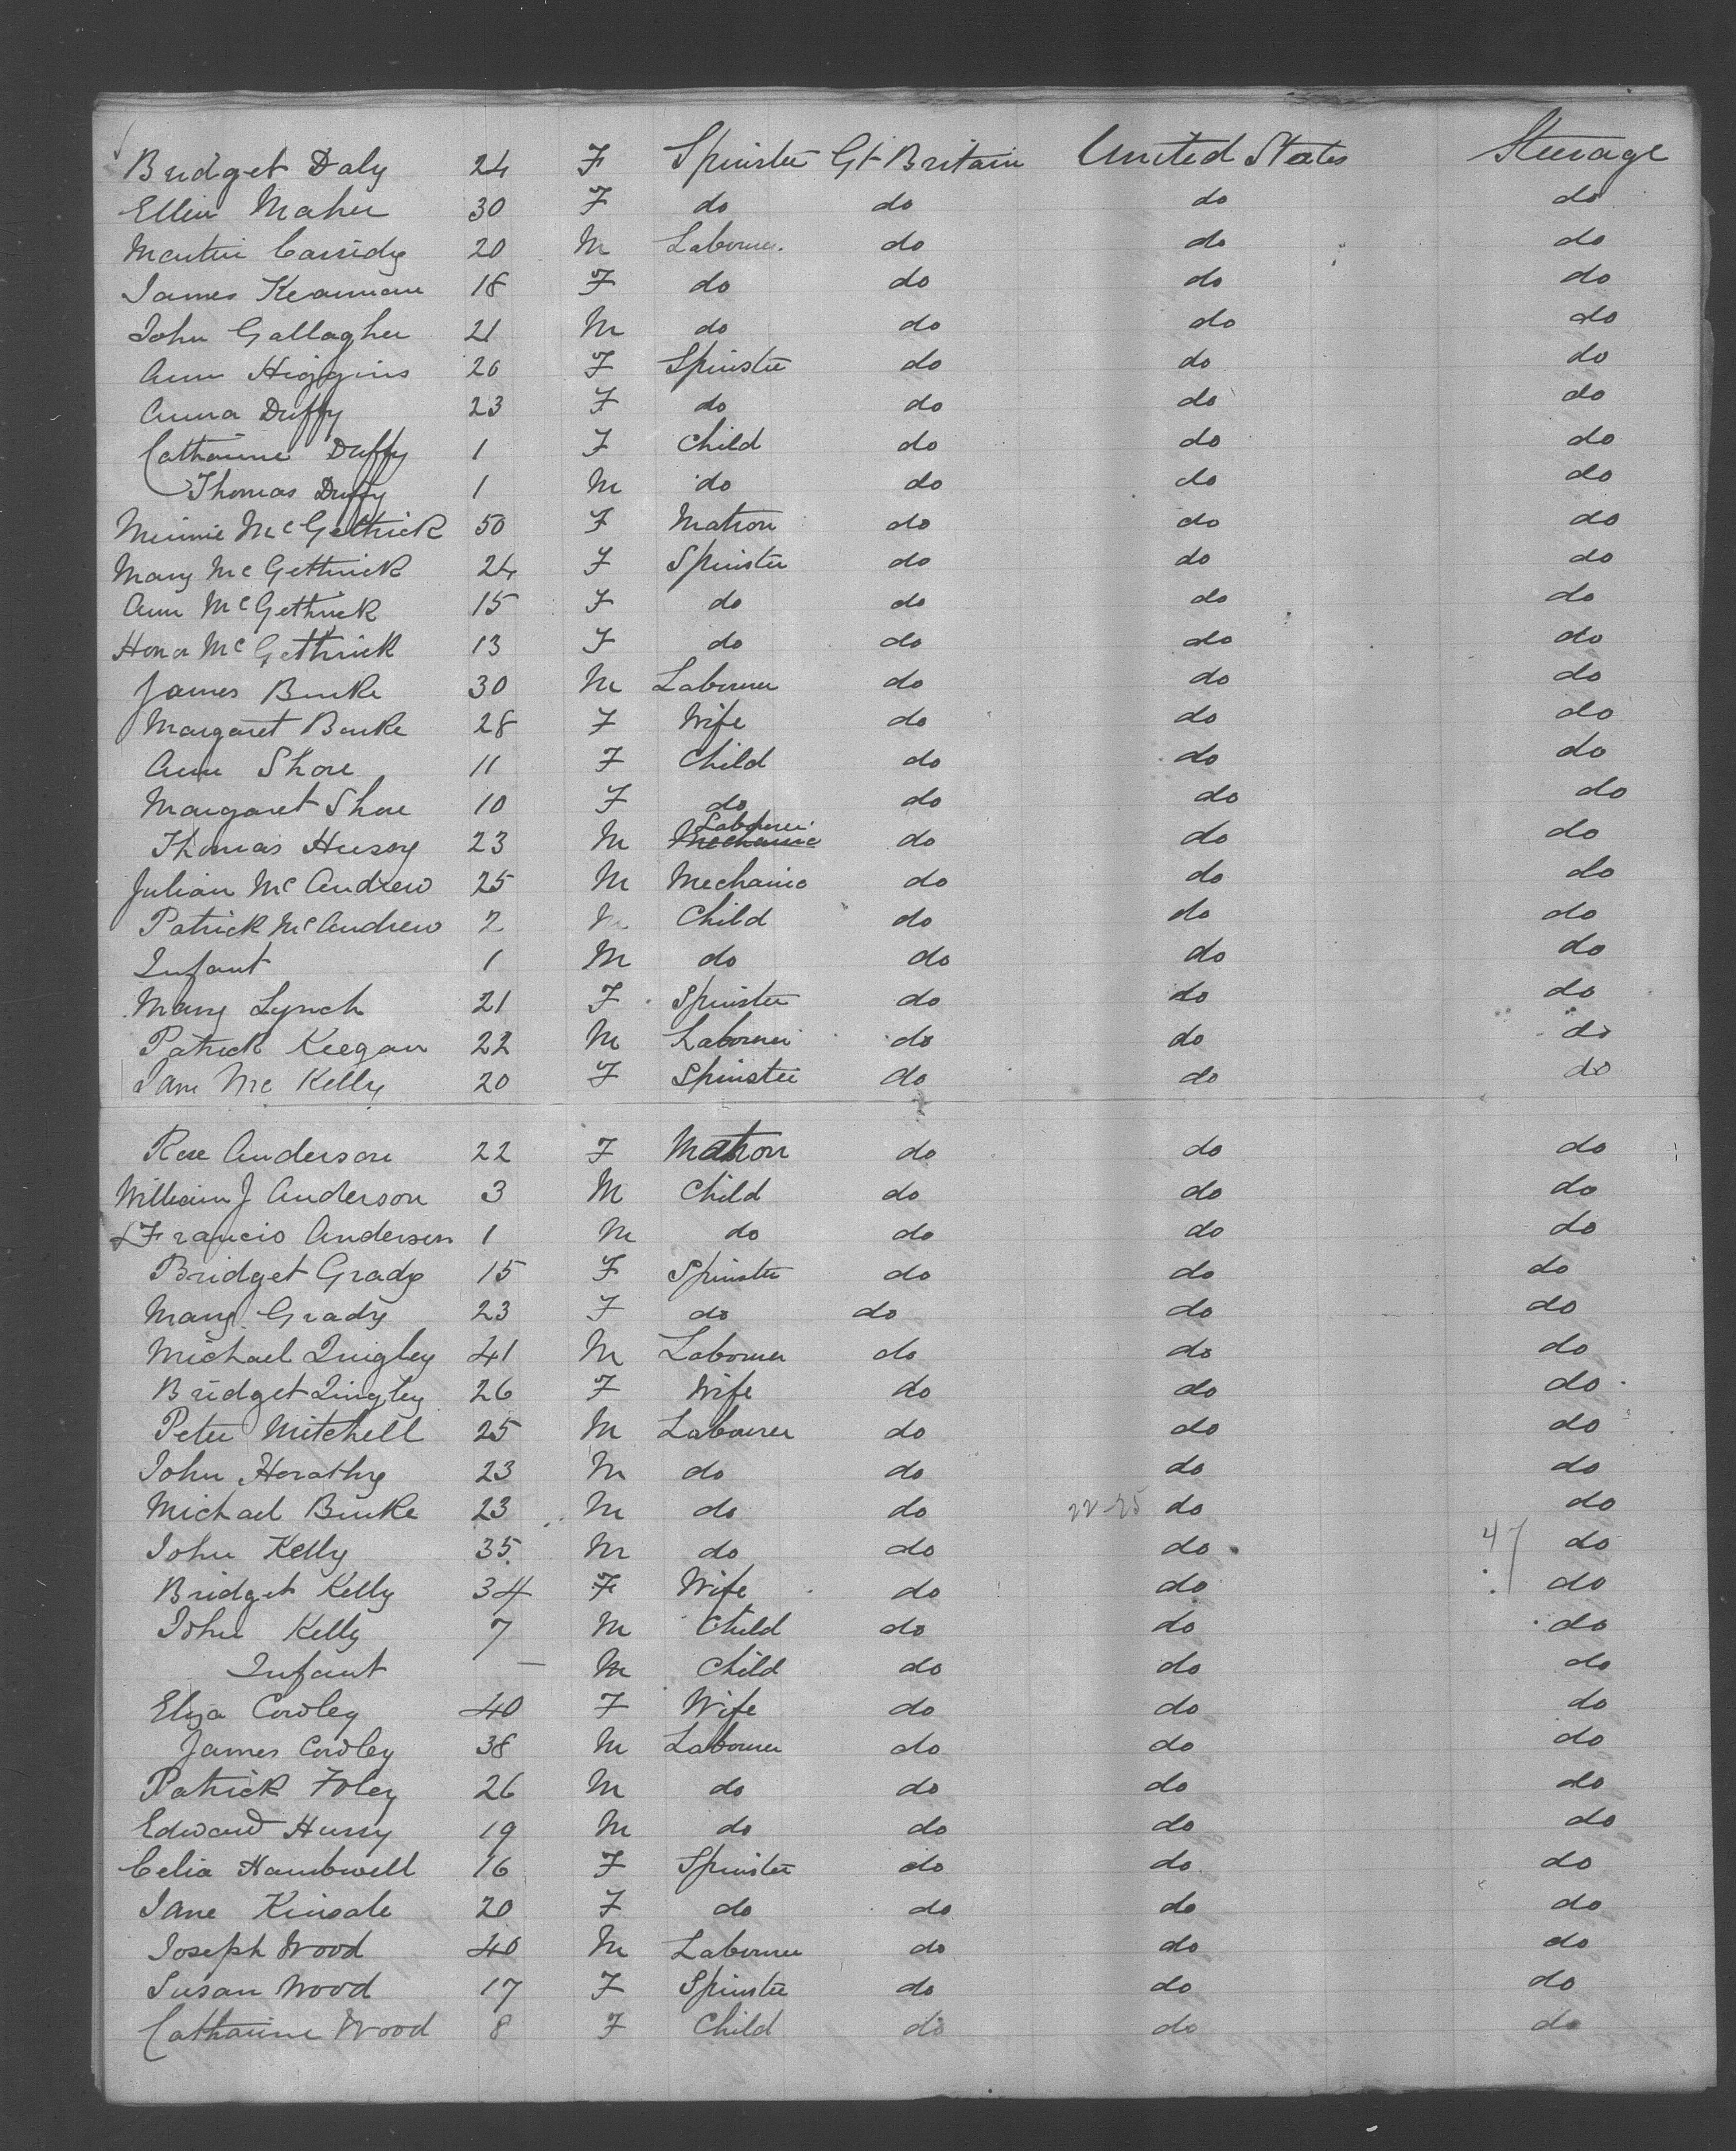 Bridget Daly 24 F Spinster Gt Britain United States Steerage
Ellen Maher 30 F do do do do
Martin Cassidy 20 M Labourer do do do
James Kearnan 18 F do do do do
John Gallagher 21 M do do do do
Ann Higgins 26 F Spinster do do do
Anna Duffy 23 F do do do do
Catharine Duffy 1 F Child do do do
Thomas Duffy 1 M do do do do
Minnie McGettrick 50 F Matron do do do
Mary McGettrick 24 F Spinster do do do
Ann McGettrick 15 F do do do do
Honor McGettrick 13 F do do do do
James Burke 30 M Labourer do do do
Margaret Burke 28 F Wife do do do
Ann Shore 11 F Child do do do
Margaret Shore 10 F do do do do
Labourer
Thomas Hussy 23 M Mechanic do do do
Julian McAndrew 25 M Mechanic do do do
Patrick McAndrew 2 M Child do do do
Infant 1 M do do do do
Mary Lynch 21 F Spinster do do do
Patrick Keegan 22 M Labourer do do do
Jane Mc Kelly 20 F Spinster do do do
Rose Anderson 22 F Matron do do do
William J Anderson 3 M Child do do do
Francis Anderson 1 M do do do do
Bridget Grady 15 F Spinster do do do
Mary Grady 23 F do do do do
Michael Quigley 41 M Labourer do do do
Bridget Quigley 26 F Wife do do do
Peter Mitchell 25 M Labourer do do do
John 23 M do do do do
Michael Burke 23 M do do 22-25 do do
John Kelly 35 M do do do 47 do
Bridget Kelly 34 F Wife do do do
John Kelly 7 M Child do do do
Infant — M Child do do do
Eliza Cowley 40 F Wife do do do
James Cowley 38 M Labourer do do do
Patrick Foley 26 M do do do do
Edward Hussy 19 M do do do do
Celia 16 F Spinster do do do
Jane Kinsale 20 F do do do do
Joseph Wood 40 M Labourer do do do
Susan Wood 17 F Spinster do do do
Catharine Wood 8 F Child do do do